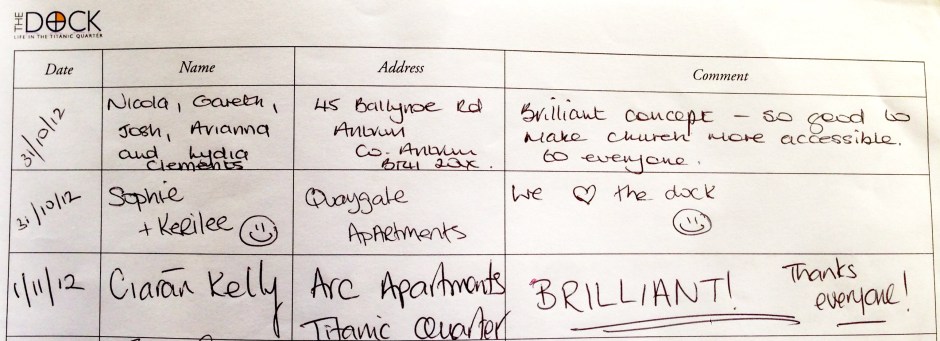 THE DOCK
LIFE IN THE TITANIC QUARTER
Date Name Address Comment
31/10/12
Nicola, Gareth,
Josh, Arianna
and Lydia
Clements
45 Ballynoe Rd
Antrim
Co. Antrim
Brilliant concept – so good to
make church more accessible.
to everyone.
31/10/12
Sophie
+ Kerilee
Quaygate
Apartments
We ♡ the dock
1/11/12
Ciarán Kelly
Arc Apartments
Titanic Quarter
BRILLIANT!
Thanks
everyone!